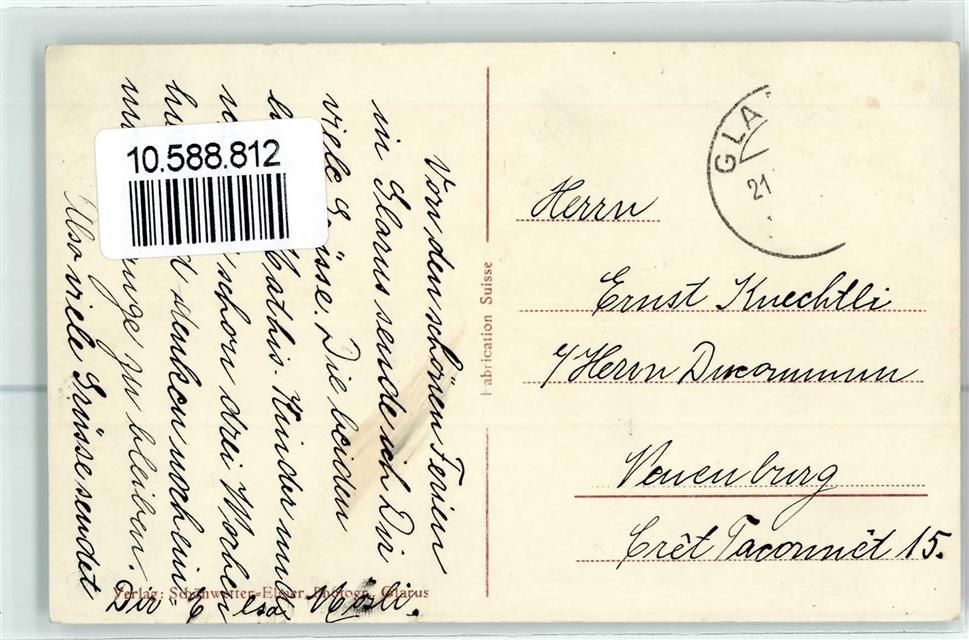 Von den schönen Ferien
in Glarus sende ich Dir
viele Grüsse. Die beiden
Mathis. Kinder und
schon drei Wochen
denken noch ein
zu bleiben.
Also viele Grüsse sendet
Dir Elsa Mösli.
10.588.812
Verlag: Schönwetter=Elmer, Photogr. Glarus
Fabrication Suisse
GLA
21
Herrn
Ernst Knechtli
c/ Herrn Ducommun
Neuenburg
Crêt Taconnêt 15.